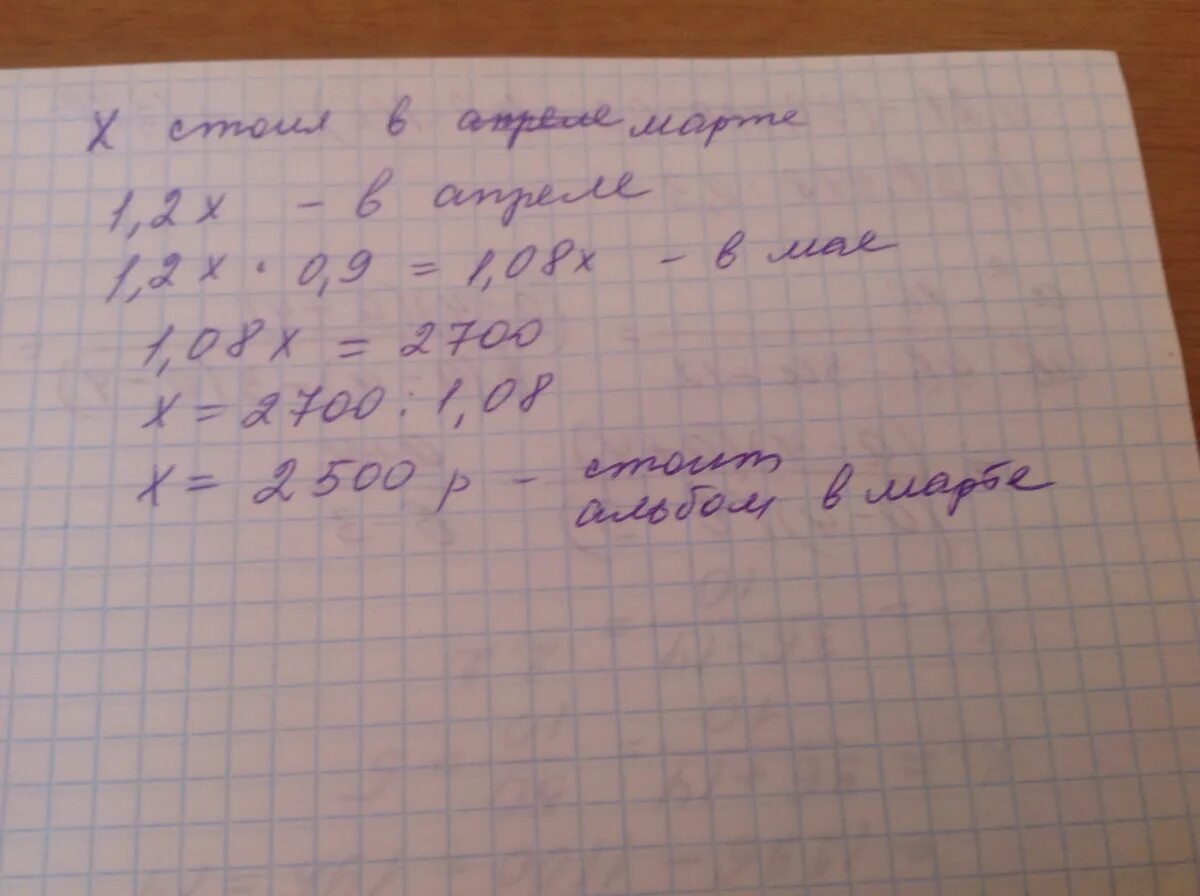 x стоил в апреле марте
1,2x - в апреле
1,2x · 0,9 = 1,08x - в мае
1,08x = 2700
x = 2700 : 1,08
x = 2500 р - стоит
альбом в марте